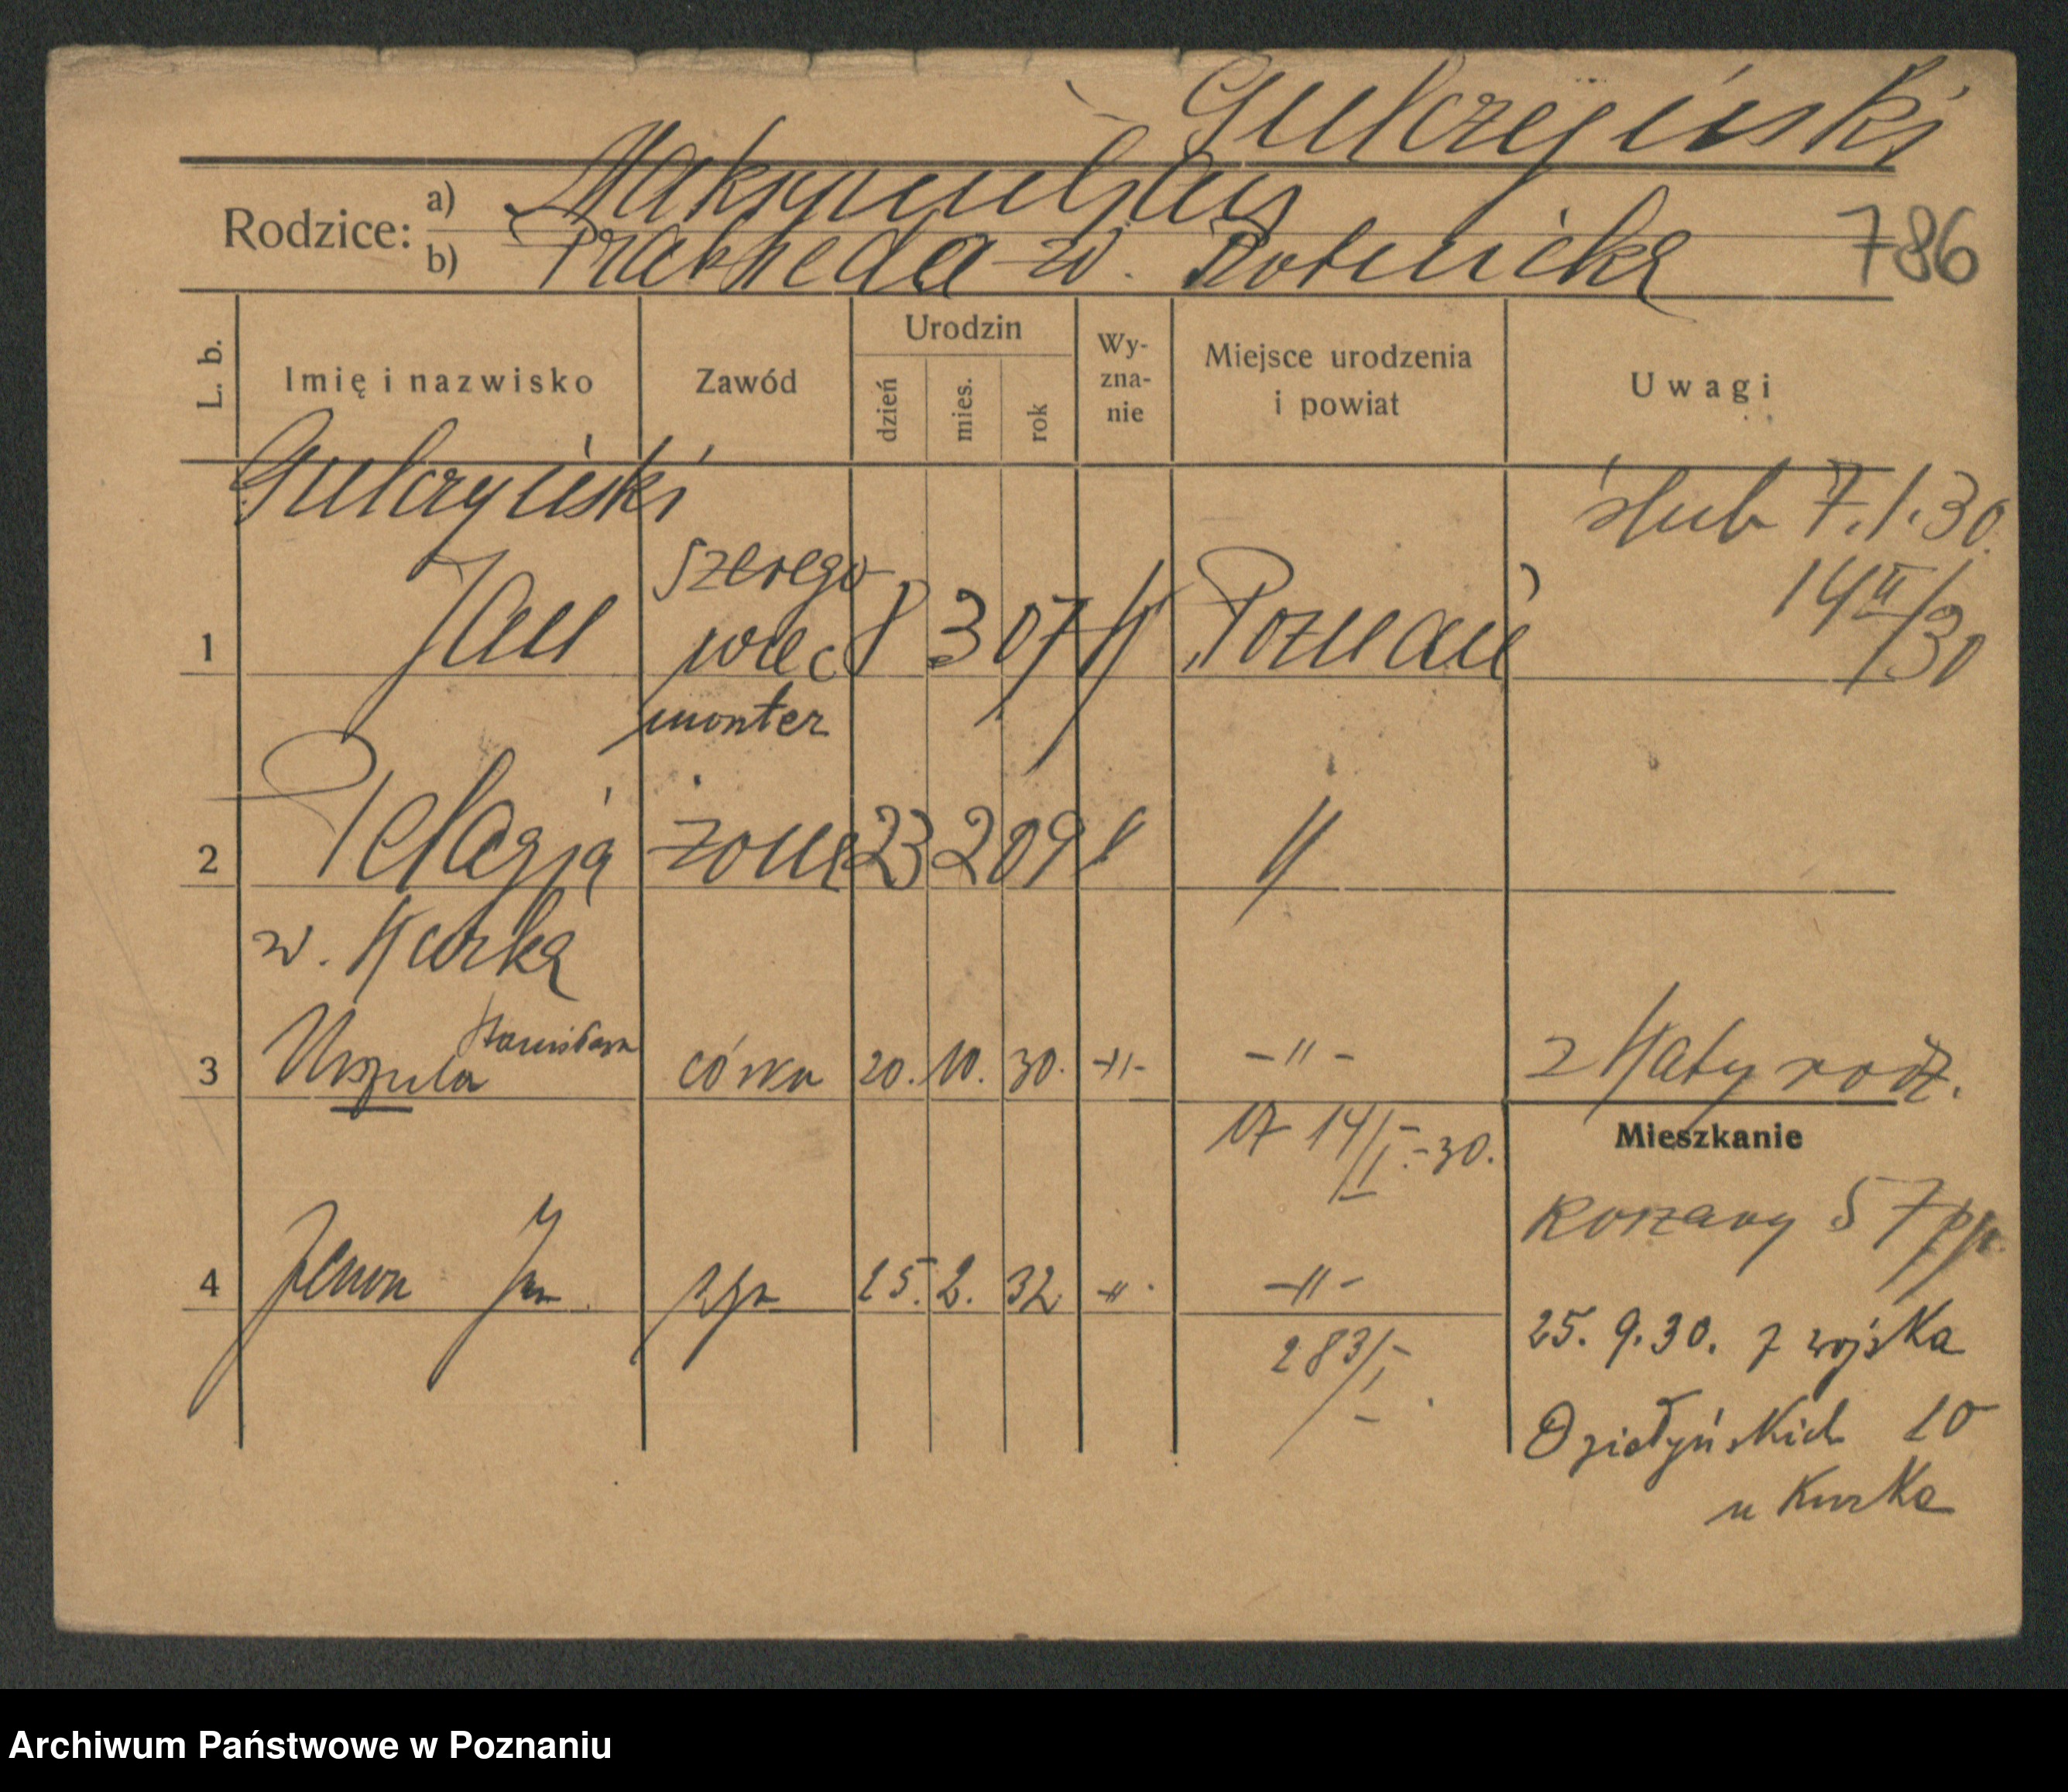 Gulczyński
Rodzice:
a) Maksymiljan
b) Prakseda z d. Rotnicka
786
L. b.
Imię i nazwisko
Zawód
Urodzin
dzień
mies.
rok
Wy-
zna-
nie
Miejsce urodzenia
i powiat
Uwagi
Gulczyński
ślub 7.1.30.
szerego
14 II/30
1 Jan wiec 8 3 07 K Poznań
monter
2 Pelagja żona 23 2 09 " "
z d. Kurka
3 Urszula Stanisława córka 20. 10. 30. -"- -"- z Karty rodz.
17 14/I.-30.
Mieszkanie
Koszary 57 pp.
4 Zenon Jan syn 15. 2. 32 -"- -"-
283/I
25. 9. 30. z wojska
Działyńskich 10
u Kurka
Archiwum Państwowe w Poznaniu